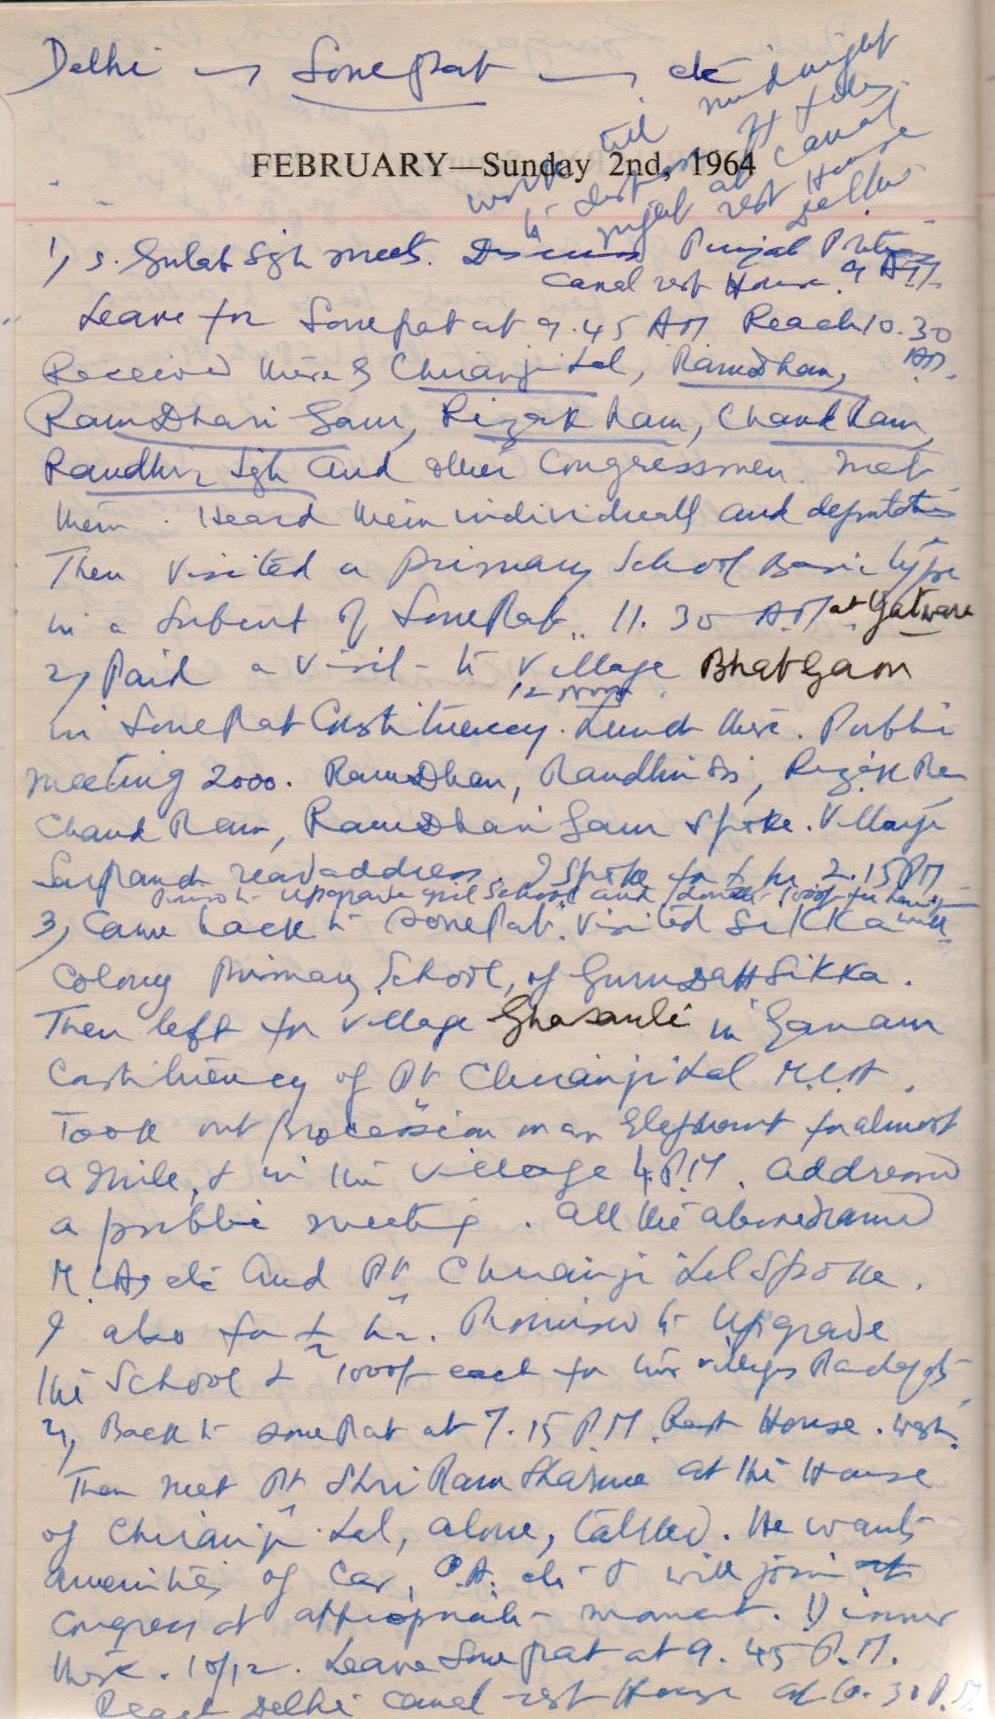 Delhi → Sonepat → etc
work till midnight
to dispose of files.
night at Canal
rest House
Delhi.
FEBRUARY—Sunday 2nd, 1964
1) S. Gulab Sgh meets. Discuss Punjab Politics
Canal rest House. 9 AM.
Leave for Sonepat at 9.45 AM Reach 10.30
AM.
Received there by Chiranji Lal, RamDhan,
RamDhari Gaur, Rizak Ram, Chand Ram,
Randhir Sgh and other Congressmen. Met
them. Heard them individually and deputations
Then visited a primary School Basic type
in a suburb of SonePat. 11.30 A.M at Gatware
2) Paid a visit to Village BhatGaon
12 noon.
in SonePat Constituency. Lunch there. Public
meeting 2000. RamDhan, Randhir S, Rizak Ra
Chand Ram, RamDhari Gaur spoke. Village
Sarpanch read address. I spoke for ½ hr. 2.15 PM
Promise to upgrade girl School and donate 1000/- for
3) Came back to SonePat. Visited Sikka
Colony Primary School, of GuruDatt Sikka.
Then left for village Ghasauli in Ganaur
Constituency of Pt Chiranji Lal M.L.A.
Took out procession on an Elephant for almost
a mile, & in the village 4 P.M. addressed
a public meeting. All the abovenamed
M.LAs etc and Pt Chiranji Lal spoke.
I also for ½ hr. Promised to upgrade
the School & 1000/- each for two villages
4) Back to SonePat at 7.15 P.M Rest House. wash.
Then meet Pt Shri Ram Sharma at the House
of Chiranji Lal, alone, talked. He wants
amenities of Car, P.A. etc & will join
Congress at appropriate moment. Dinner
there. 10/12. Leave Sonepat at 9.45 P.M.
Reach Delhi canal rest House at 10.30 P.M.